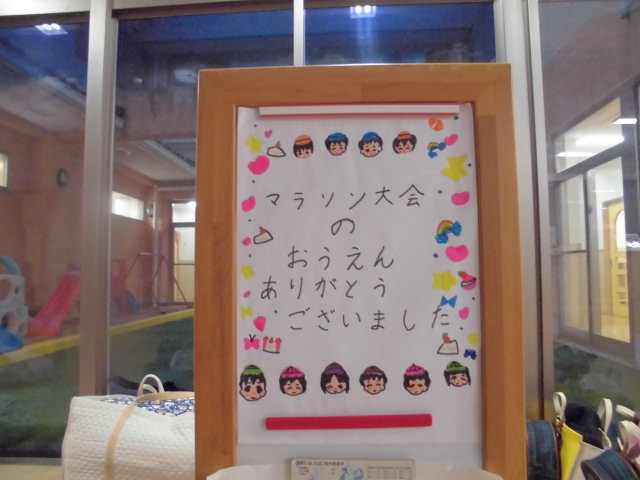 マラソン大会
の
おうえん
ありがとう
ございました